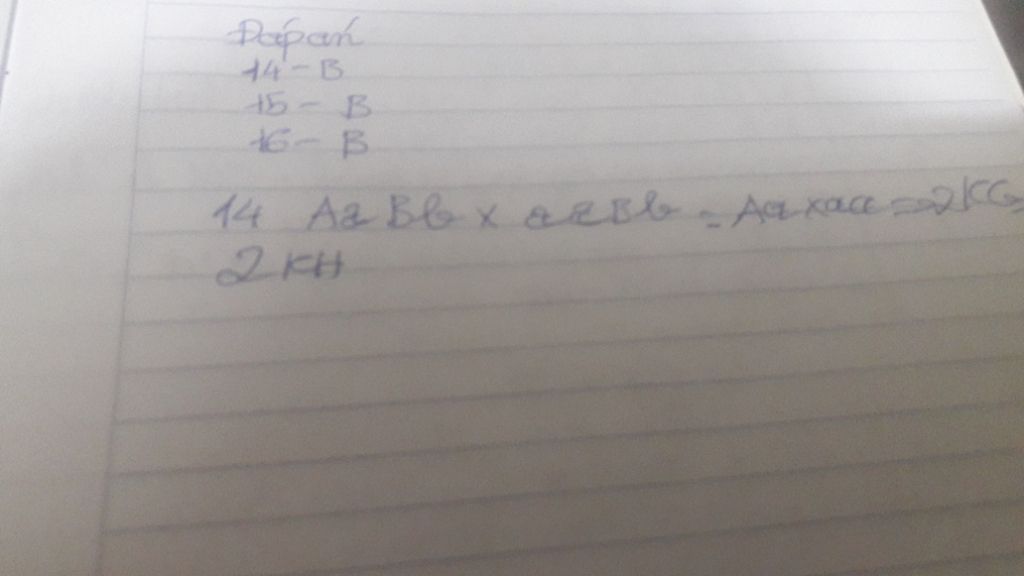 Đáp án
14 - B
15 - B
16 - B
14 AaBb x aaBb = Aa x aa => 2KG
2 KH